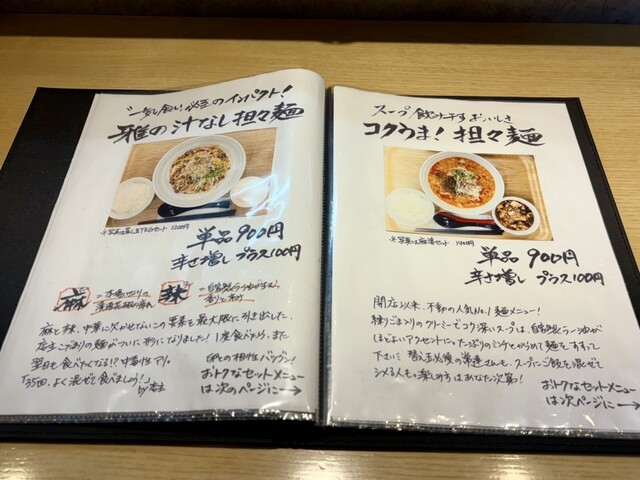 "一気食い"必至のインパクト!
雅の汁なし担々麺
単品900円
辛さ増し プラス100円
麻
辣
麻と辣、中華に欠かせないこの要素を最大限に引き出した、
店主こだわりの麺がついに形になりました!1度食べたら、また
翌日も食べたくなる!?中毒性アリ。
「35回、よく混ぜて食べましょう!」
by店主
卵との相性バツグン!
おトクなセットメニュー
は次のページに→
スープ飲み干すおいしさ
コクうま!担々麺
※写真は麻婆セット 1400円
単品 900円
辛さ増し プラス100円
開店以来、不動の人気No.1麺メニュー!
練りごまつりのクリーミーでコク深いスープは、自家製ラー油が
ほどよいアクセントに。たっぷりのミンチとからめて麺をすすって
下さい。替え玉派の常連さんも、スープにご飯を混ぜて
シメる人も。楽しみ方はあなた次第!
おトクなセットメニュー
は次ページに→